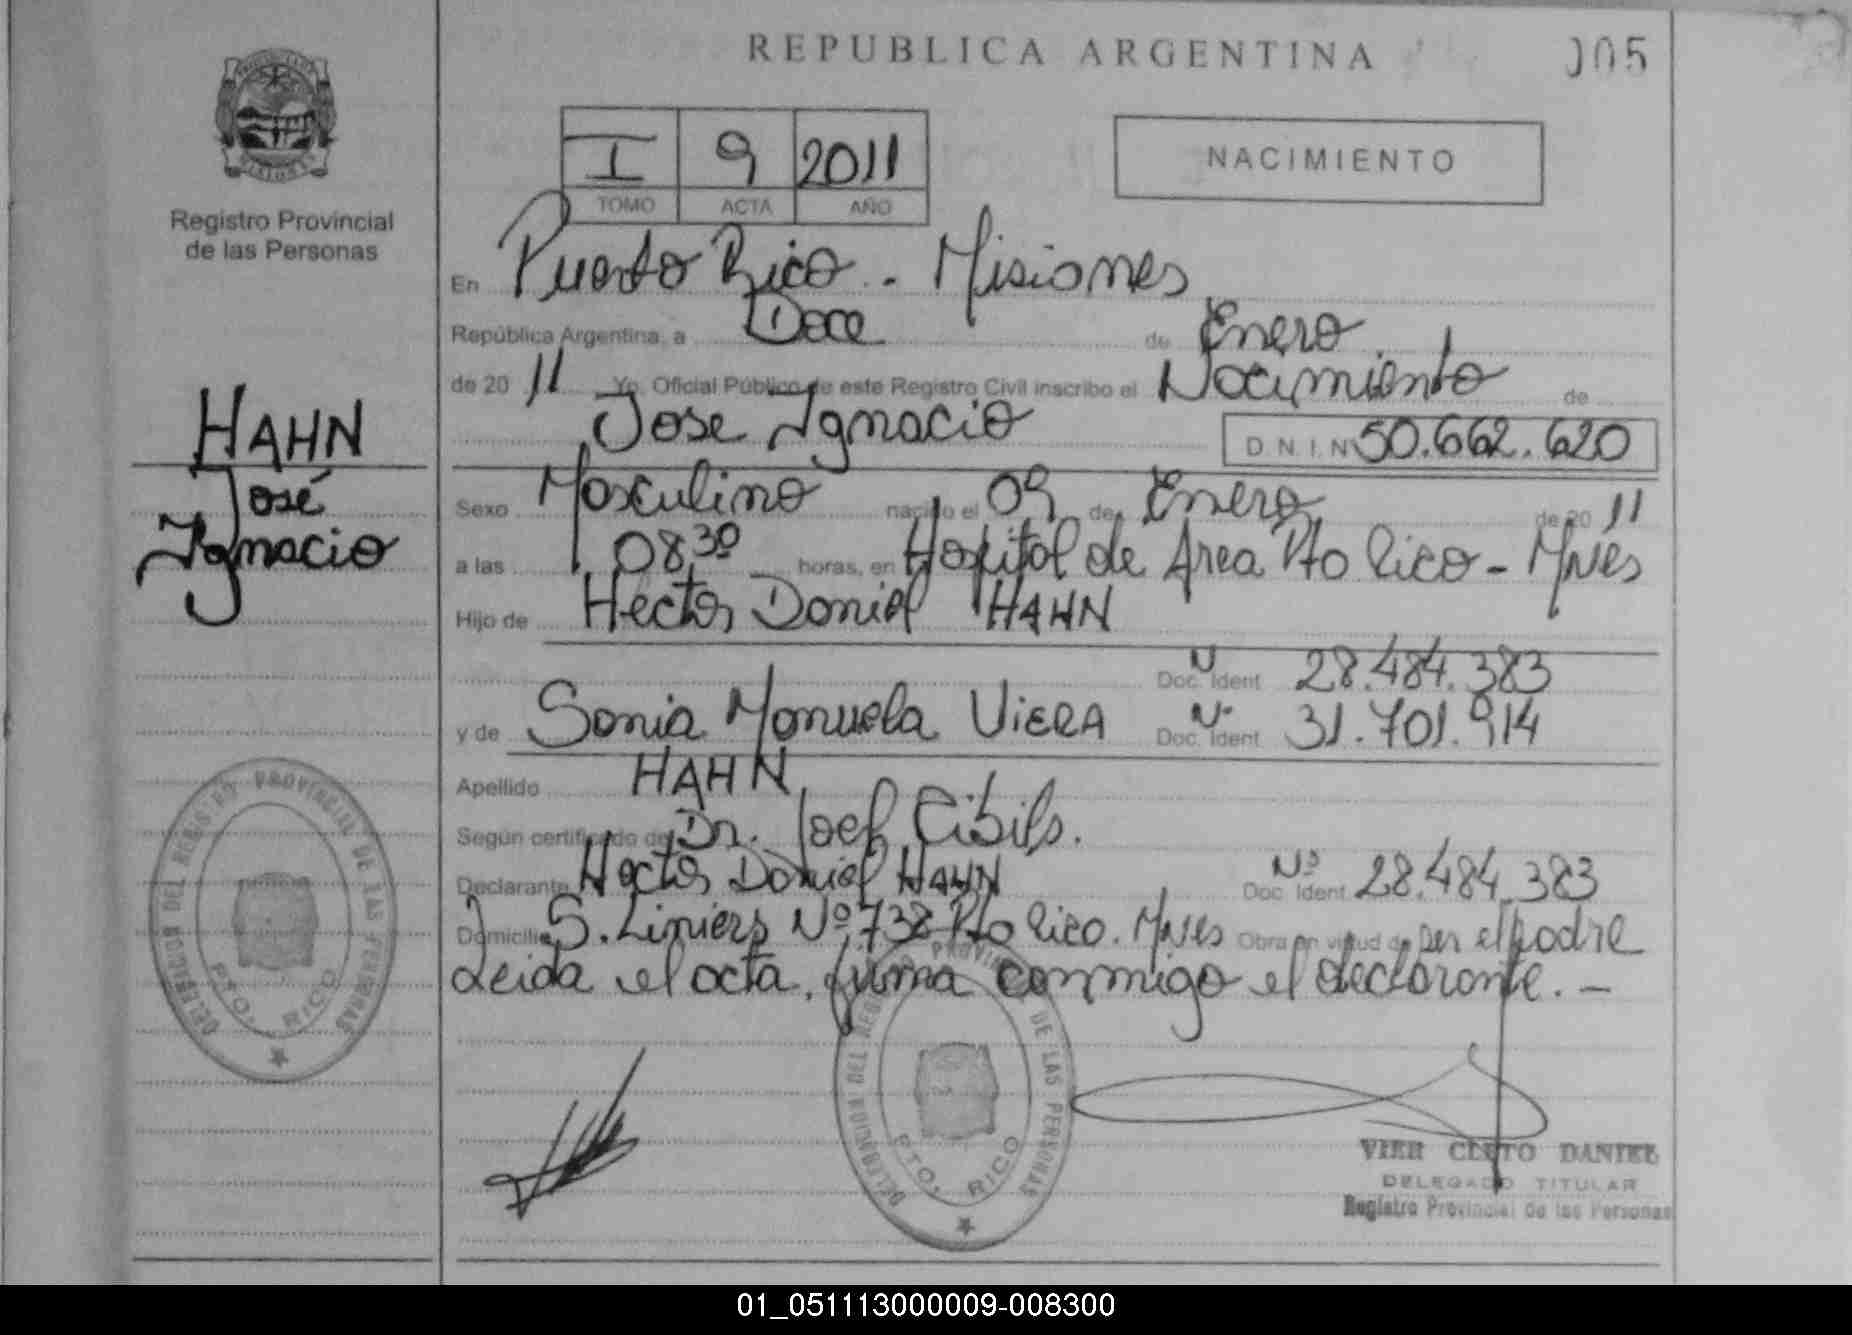 REPUBLICA ARGENTINA
005
I 9 2011
TOMO ACTA AÑO
NACIMIENTO
Registro Provincial
de las Personas
HAHN
José
Ignacio
En Puerto Rico - Misiones
República Argentina, a Doce de Enero
de 2011 Yo, Oficial Público de este Registro Civil inscribo el Nacimiento de
Jose Ignacio D.N.I.Nº 50.662.620
Sexo Masculino nacido el 09 de Enero de 2011
a las 08,30 horas, en Hospital de Area Pto Rico - Mnes
Hijo de Hector Daniel HAHN
Doc. Ident Nº 28.484.383
y de Sonia Manuela VIERA Doc. Ident Nº 31.701.914
Apellido HAHN
Según certificado de Dr. Joel Cibils.
Declarante Hector Daniel HAHN Doc. Ident Nº 28.484.383
Domicilio S. Liniers Nº 738 Pto Rico. Mnes Obra en virtud de ser el padre
Leida el acta, firma conmigo el declarante. -
DELEGACION DEL REGISTRO PROVINCIAL DE LAS PERSONAS
PTO. RICO
DELEGACION DEL REGISTRO PROVINCIAL DE LAS PERSONAS
PTO. RICO
VIER CLETO DANIEL
DELEGADO TITULAR
Registro Provincial de las Personas
01_051113000009-008300